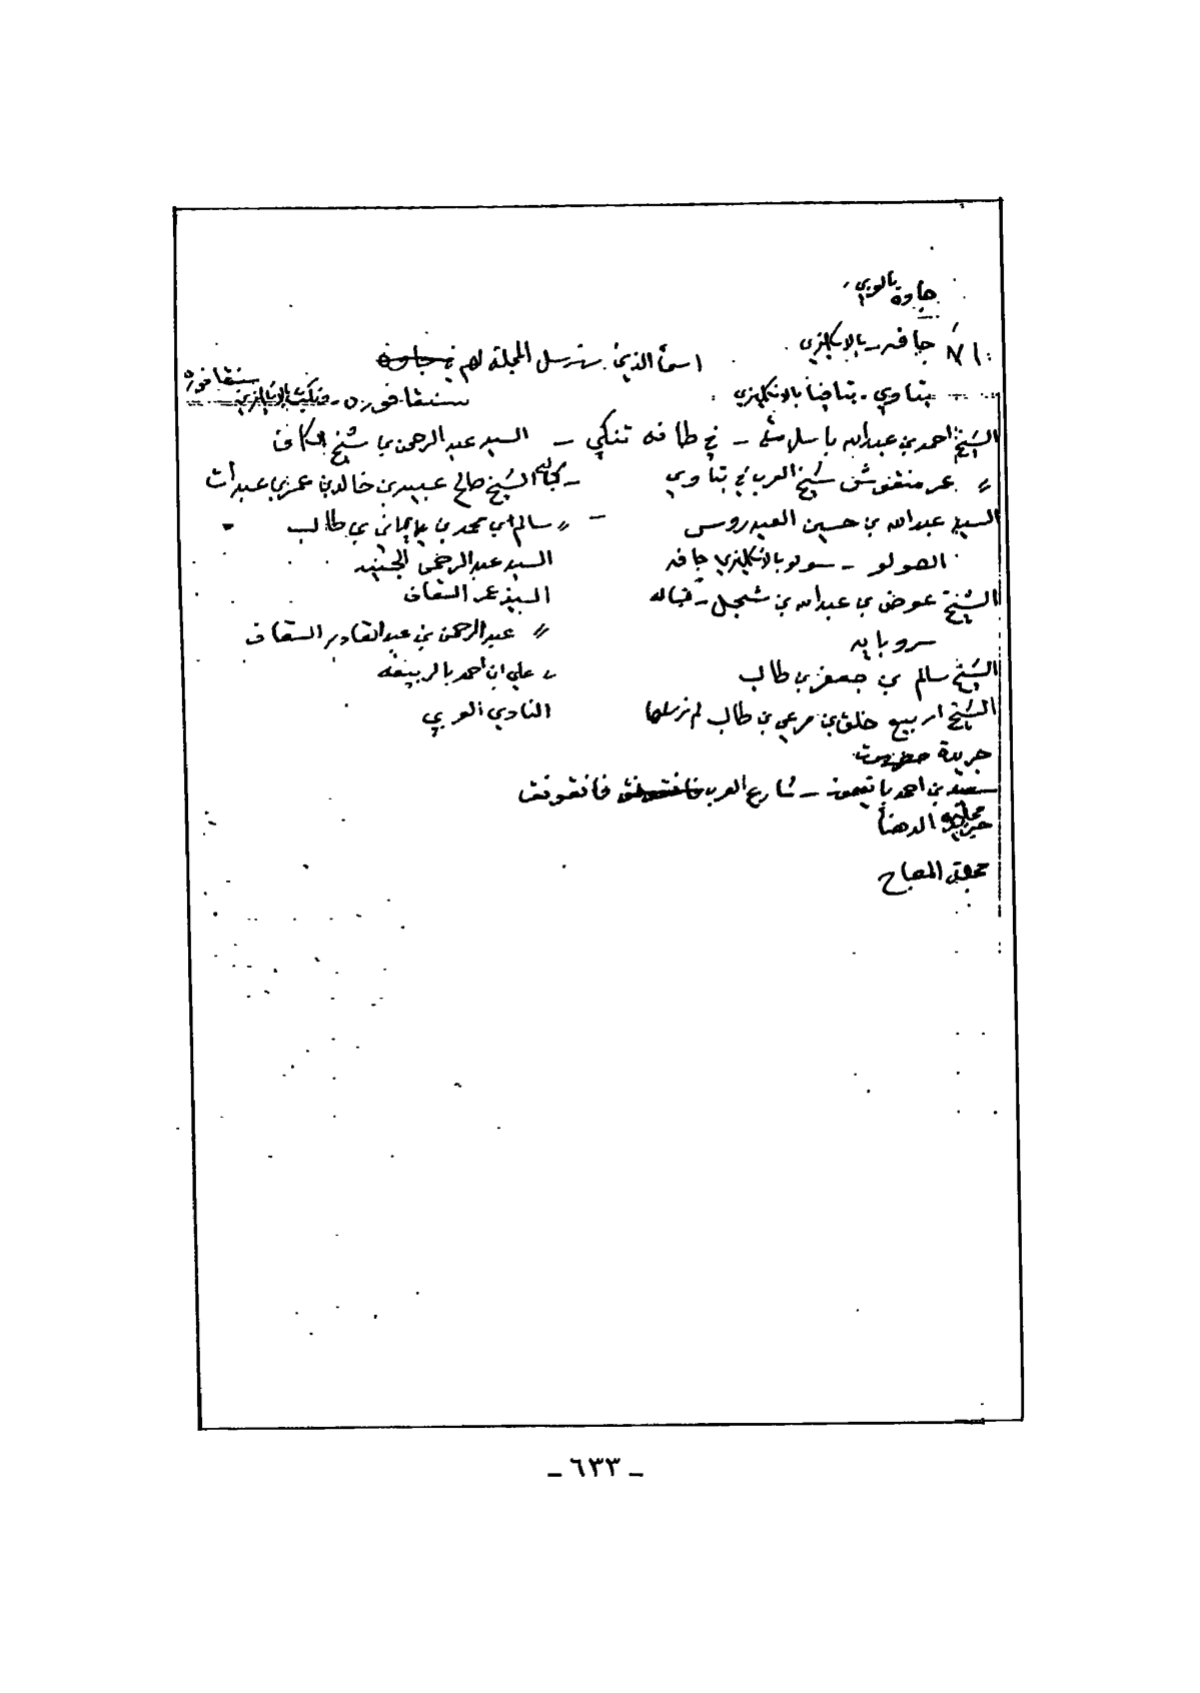 جاوة بالعربي
جافه - بالانكليزي
اسماً الذين سترسل المجلة لهم في جاوة
بتاوي - بتافيا بالانكليزي
سنقافوره - بالانكليزي سنقافوره
الشيخ احمد بن عبدالله باسلامه - في طافه تنكي - السيد عبدالرحمن بن شيخ الكاف
〃 عمر منقوش شيخ العرب في بتاوي - الشيخ صالح عبيد بن خالد بن عمر بن عبدات
السيد عبدالله بن حسين العيدروس - 〃 سالم بن محمد بن طالب
الصولو - سولو بالانكليزي جافه السيد عبدالرحمن الجنيد
الشيخ عوض بن عبدالله بن شجل - السيد عمر السقاف
سروبايه 〃 عبدالرحمن بن عبدالقادر السقاف
الشيخ سالم بن جعفر بن طالب 〃 علي ابن احمد
الشيخ اربيع خلف بن مرعي بن طالب لم نرسلها النادي العربي
جريدة حضرموت
سعيد بن احمد - شارع العرب فانقونق فانقونق
مجلة الدهنأ
مجلة المصباح
- ٦٣٣ -